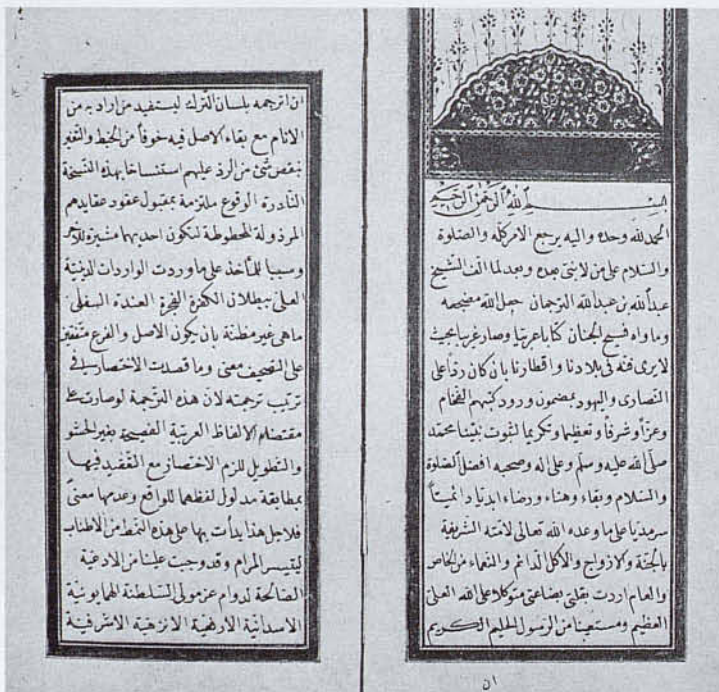 بسم الله الرحمن الرحيم
الحمد لله وحده واليه يرجع الامر كله والصلوة
والسلام على من لا نبى بعده وبعد لما الف الشيخ
عبدالله بن عبدالله الترجمان جعل الله مضجعه
وماواه فسيح الجنان كتابا عربيا وصار غريبا بحيث
لا يرى فنه فى بلادنا واقطارنا بان كان ردا على
النصارى واليهود بمضمون ورود كتبهم الفخام
وعزا وشرفا وتعظيما وتكريما لثبوت نبينا محمد
صلى الله عليه وسلم وعلى اله وصحبه افضل الصلوة
والسلام وبقاء وهناء ورضاء ابديا دائميا
سرمديا على ما وعده الله تعالى لامته الشريفة
بالجنة والازواج والاكل الدائم والنعماء من الخاص
والعام اردت بقلتى بضاعتى متوكلا على الله العلى
العظيم ومستعينا من الرسول الحليم الكريم
ان
ان اترجمه بلسان الترك ليستفيد من اراد به من
الانام مع بقاء الاصل فيه خوفا من الخبط والتغير
بنقص شئ من الرد عليهم استنساخا بهذه النسخة
النادرة الوقوع ملتزمة بمقبول عقود عقايدهم
المرذولة المحطوطة لتكون احديهما مشيرة للآخر
وسببا للمأخذ على ما وردت الواردات الدينية
العلى ببطلان الكفرة الفجرة العندة السفلى
ماهى غير مظنة بان يكون الاصل والفرع متفقين
على التصحيف معنى وما قصدت الاختصار فى
ترتيب ترجمته لان هذه الترجمة لو صارت على
مقتضاء الالفاظ العربية الفصيحة بغير الحشو
والتطويل للزم الاختصار مع التقفيد فيها
بمطابقة مدلول لفظهما للواقع وعدمها معنى
فلاجل هذا بدأت بها على هذه النمط من الاطناب
ليتيسر المرام وقد وجبت علينا من الادعية
الصالحة لدوام عز مولى السلطنة الهمايونية
الاسدانية الارفعية الانزهية الاشرفية